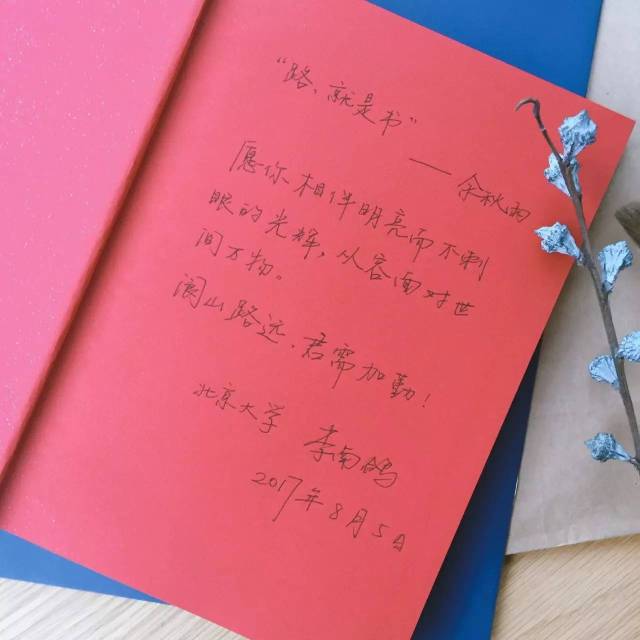 “路、就是书”
——余秋雨
愿你相伴明亮而不刺
眼的光辉，从容面对世
间万物。
阅山路远，君需加勤！
北京大学 李南鸽
2017年8月5日